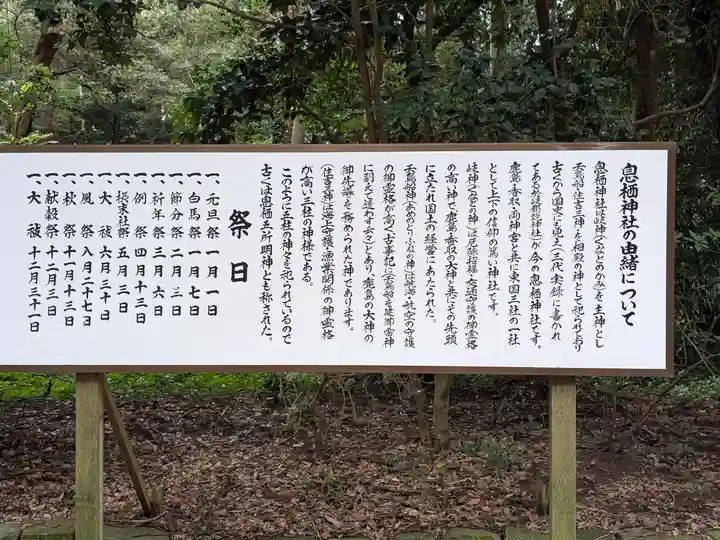 息栖神社の由緒について
息栖神社は岐神(くなどのかみ)を主神とし
天鳥船、住吉三神を相殿の神として祀られており
古くから国史にも見え(三代実録)に書かれ
てある於岐都説神社が今の息栖神社です。
鹿島・香取両神宮と共に東国三社の一社
として上下の信仰の篤い神社です。
岐神(くなどの神)は厄除招福・交通守護の御霊格
の高い神で、鹿島・香取の大神と共にその先頭
に立たれ国土の経営にあたられた。
天鳥船神(あめのとりふねの神)は航海・航空の守護
の御霊格が高く古事記に(天鳥船を建御雷神
に副えて遣わす云々)とあり、鹿島の大神の
御先導を務められた神であります。
(住吉三神)は海上守護、漁業関係の御霊格
が高い三社の神様である。
このように五社の神々を祀られているので
古くは息栖五所明神とも称された。
祭日
一、元旦祭 一月一日
一、白馬祭 一月七日
一、節分祭 二月三日
一、祈年祭 三月六日
一、例 祭 四月十三日
一、摂末社祭 五月三日
一、大 祓 六月三十日
一、風 祭 八月二十七日
一、秋 祭 十一月十三日
一、献穀祭 十二月三日
一、大 祓 十二月三十一日